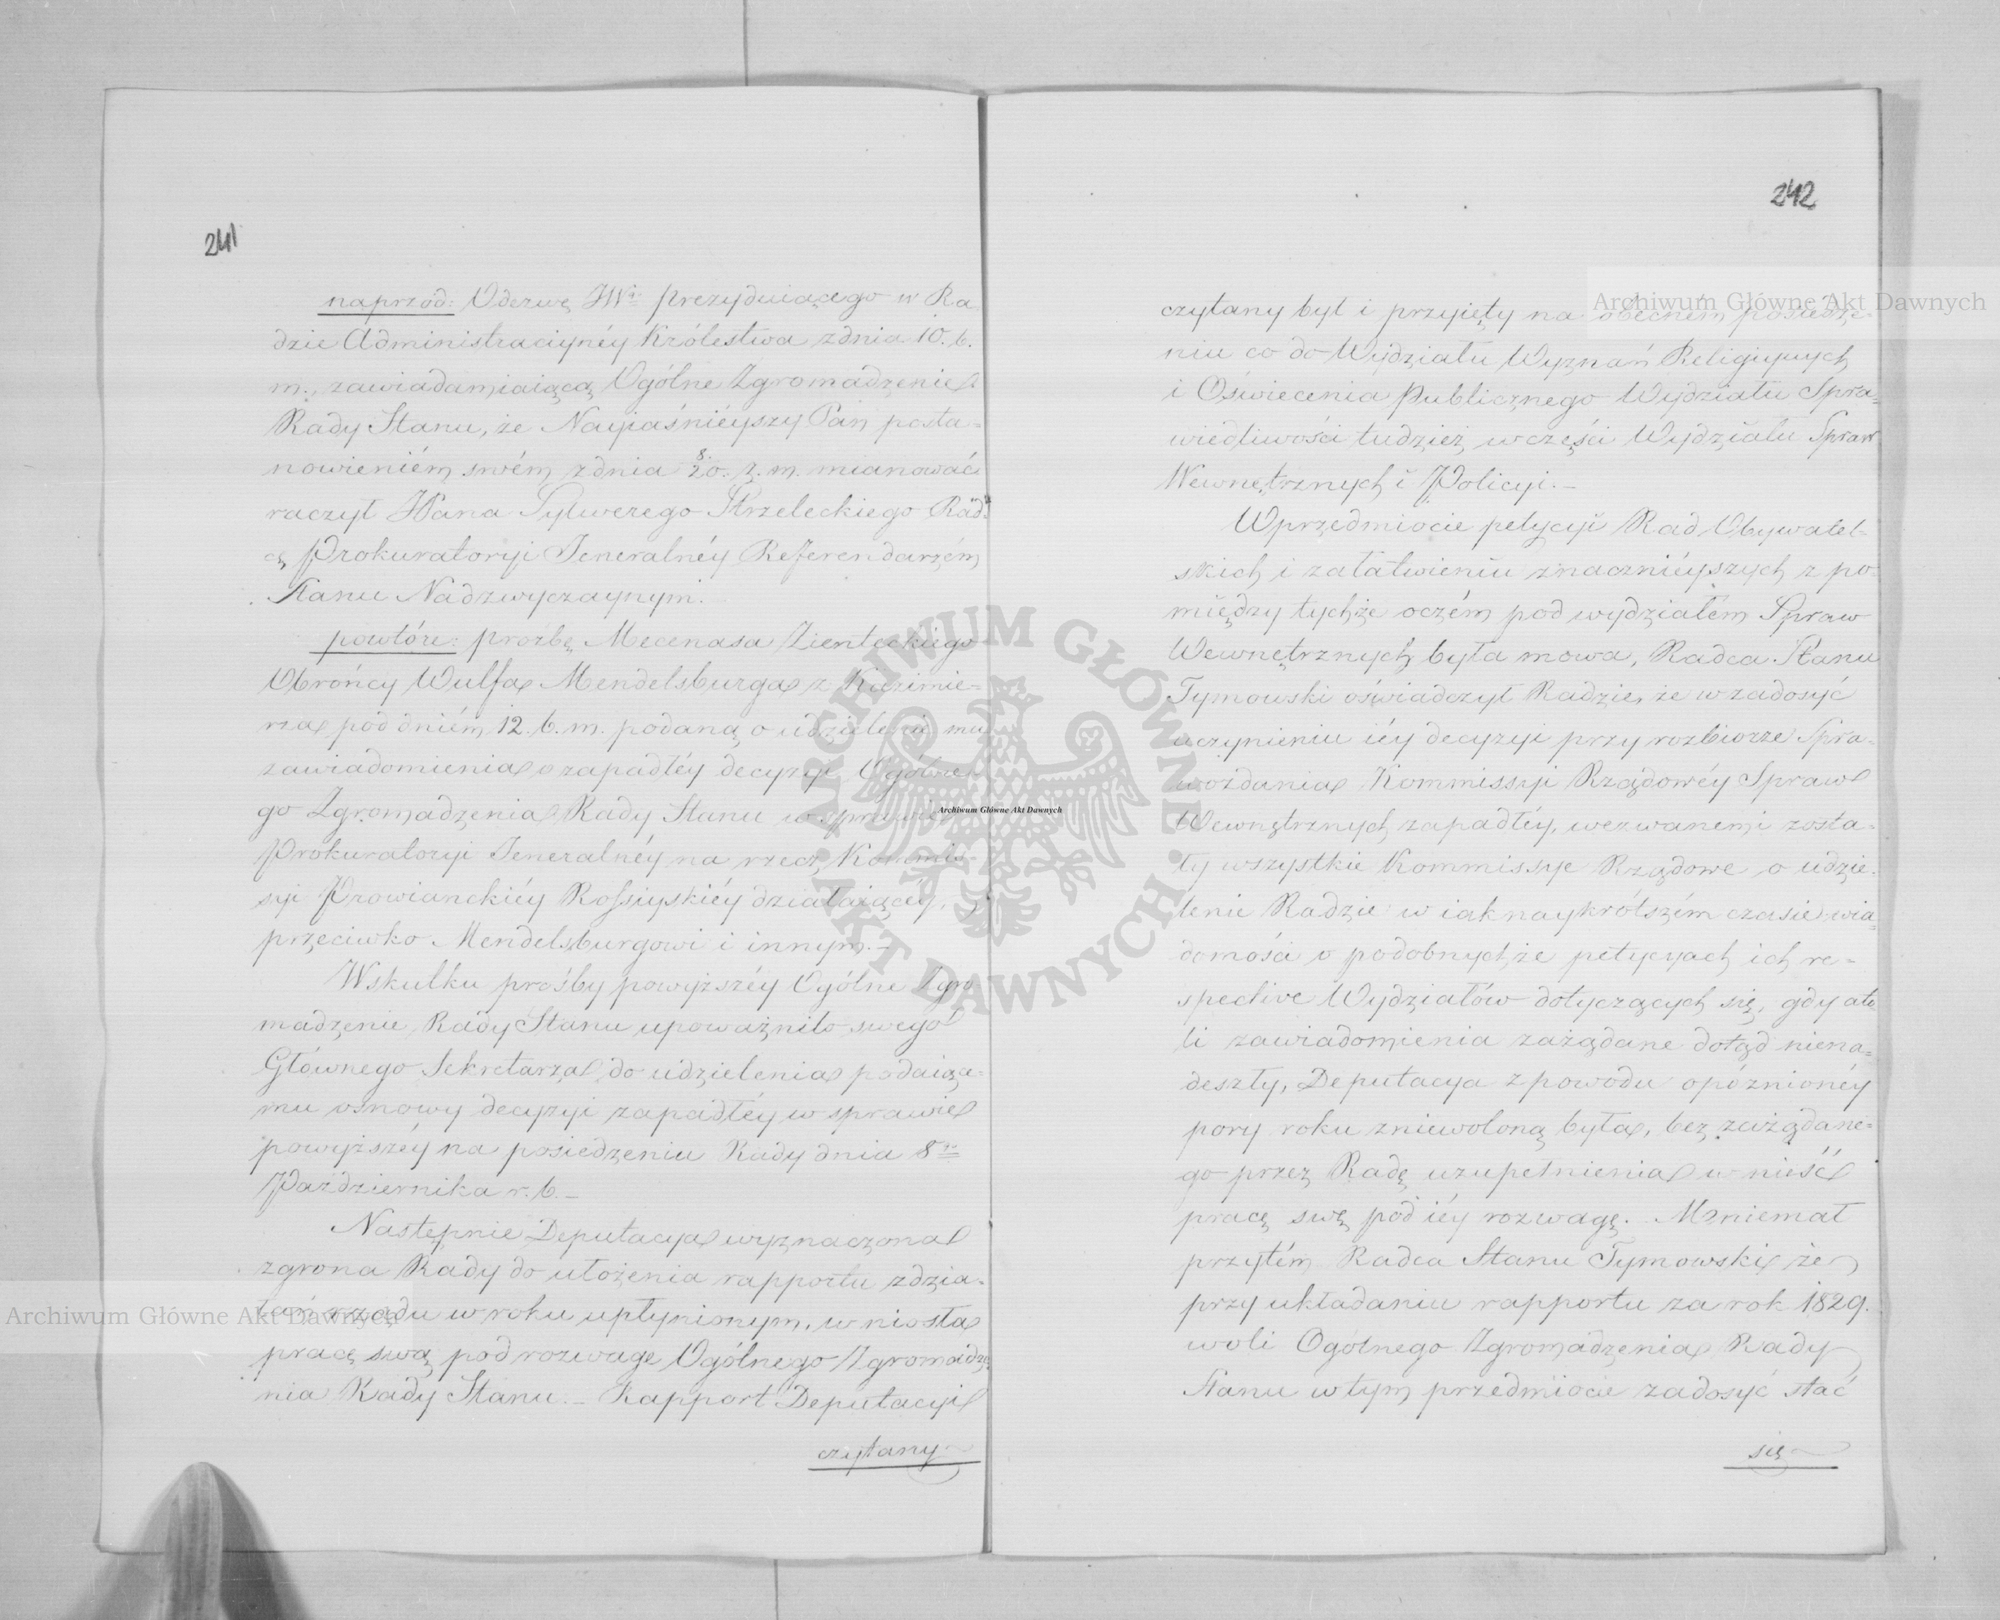 241
naprzód: Odezwę JWo Prezyduiącego w Ra
dzie Administracyinéy Królestwa z dnia 10. b.
m., zawiadamiaiącą Ogólne Zgromadzenie
Rady Stanu, że Nayiaśniéyszy Pan posta-
nowieniém swém z dnia 8/20. z. m. mianować
raczył JPana Sylwerego Strzeleckiego Rad-
cę Prokuratoryi Jeneralnéy Referendarzém
Stanu Nadzwyczaynym.
powtóre: prozbę Mecenasa Zienteckiego
Obrońcy Wulfa Mendelsburga z Kazimie-
rza pod dniém 12. b. m. podaną, o udzielenie mu
zawiadomienia o zapadłéy decyzyi Ogólne-
go Zgromadzenia Rady Stanu w sprawie
Prokuratoryi Jeneralnéy na rzecz Kommis-
syi Prowianckiéy Rossyiskiéy działaiącéy,
przeciwko Mendelsburgowi i innym.-
Wskutku prośby powyższéy Ogólne Zgro
madzenie Rady Stanu upoważniło swego
Głównego Sekretarza do udzielenia podaiące-
mu osnowy decyzyi zapadłéy w sprawie
powyższéy na posiedzeniu Rady dnia 8go
Października r. b.-
Następnie Deputacya wyznaczona
zgrona Rady do ułożenia rapportu z dzia-
łań rządu w roku upłynionym, wniosła
pracę swą pod rozwagę Ogólnego Zgromadze
nia Rady Stanu.- Rapport Deputacyi
czytany
242
czytany był i przyięty na obecném posiedze-
niu co do Wydziału Wyznań Religiynych
i Oświecenia Publicznego Wydziału Spra-
wiedliwości tudzież w części Wydziału Spraw
Wewnętrznych i Policyi.-
W przedmiocie petycyi Rad Obywatel-
skich i załatwieniu znacznieyszych z po-
między tychże oczém pod wydziałem Spraw
Wewnętrznych była mowa, Radca Stanu
Tymowski oświadczył Radzie, że w zadosyć
uczynieniu iéy decyzyi przy rozbiorze Spra-
wozdania Kommissyi Rządowéy Spraw
Wewnętrznych zapadłéy, wezwanemi zosta-
ły wszystkie Kommissye Rządowe o udzie-
lenie Radzie w iak naykrótszém czasie wia-
domości o podobnychże petycyach ich re-
spective Wydziałów dotyczących się, gdy ato
li zawiadomienia zażądane dotąd niena-
deszły, Deputacya z powodu opóznionéy
pory roku zniewoloną była, bez zażądane-
go przez Radę uzupełnienia wnieść
pracę swę pod iéy rozwagę. Mniemał
przytém Radca Stanu Tymowski że
przy układaniu rapportu za rok 1829.
woli Ogólnego Zgromadzenia Rady
Stanu w tym przedmiocie zadosyć stać
się
Archiwum Główne Akt Dawnych
Archiwum Główne Akt Dawnych
Archiwum Główne Akt Dawnych
ARCHIWUM GŁÓWNE
AKT DAWNYCH